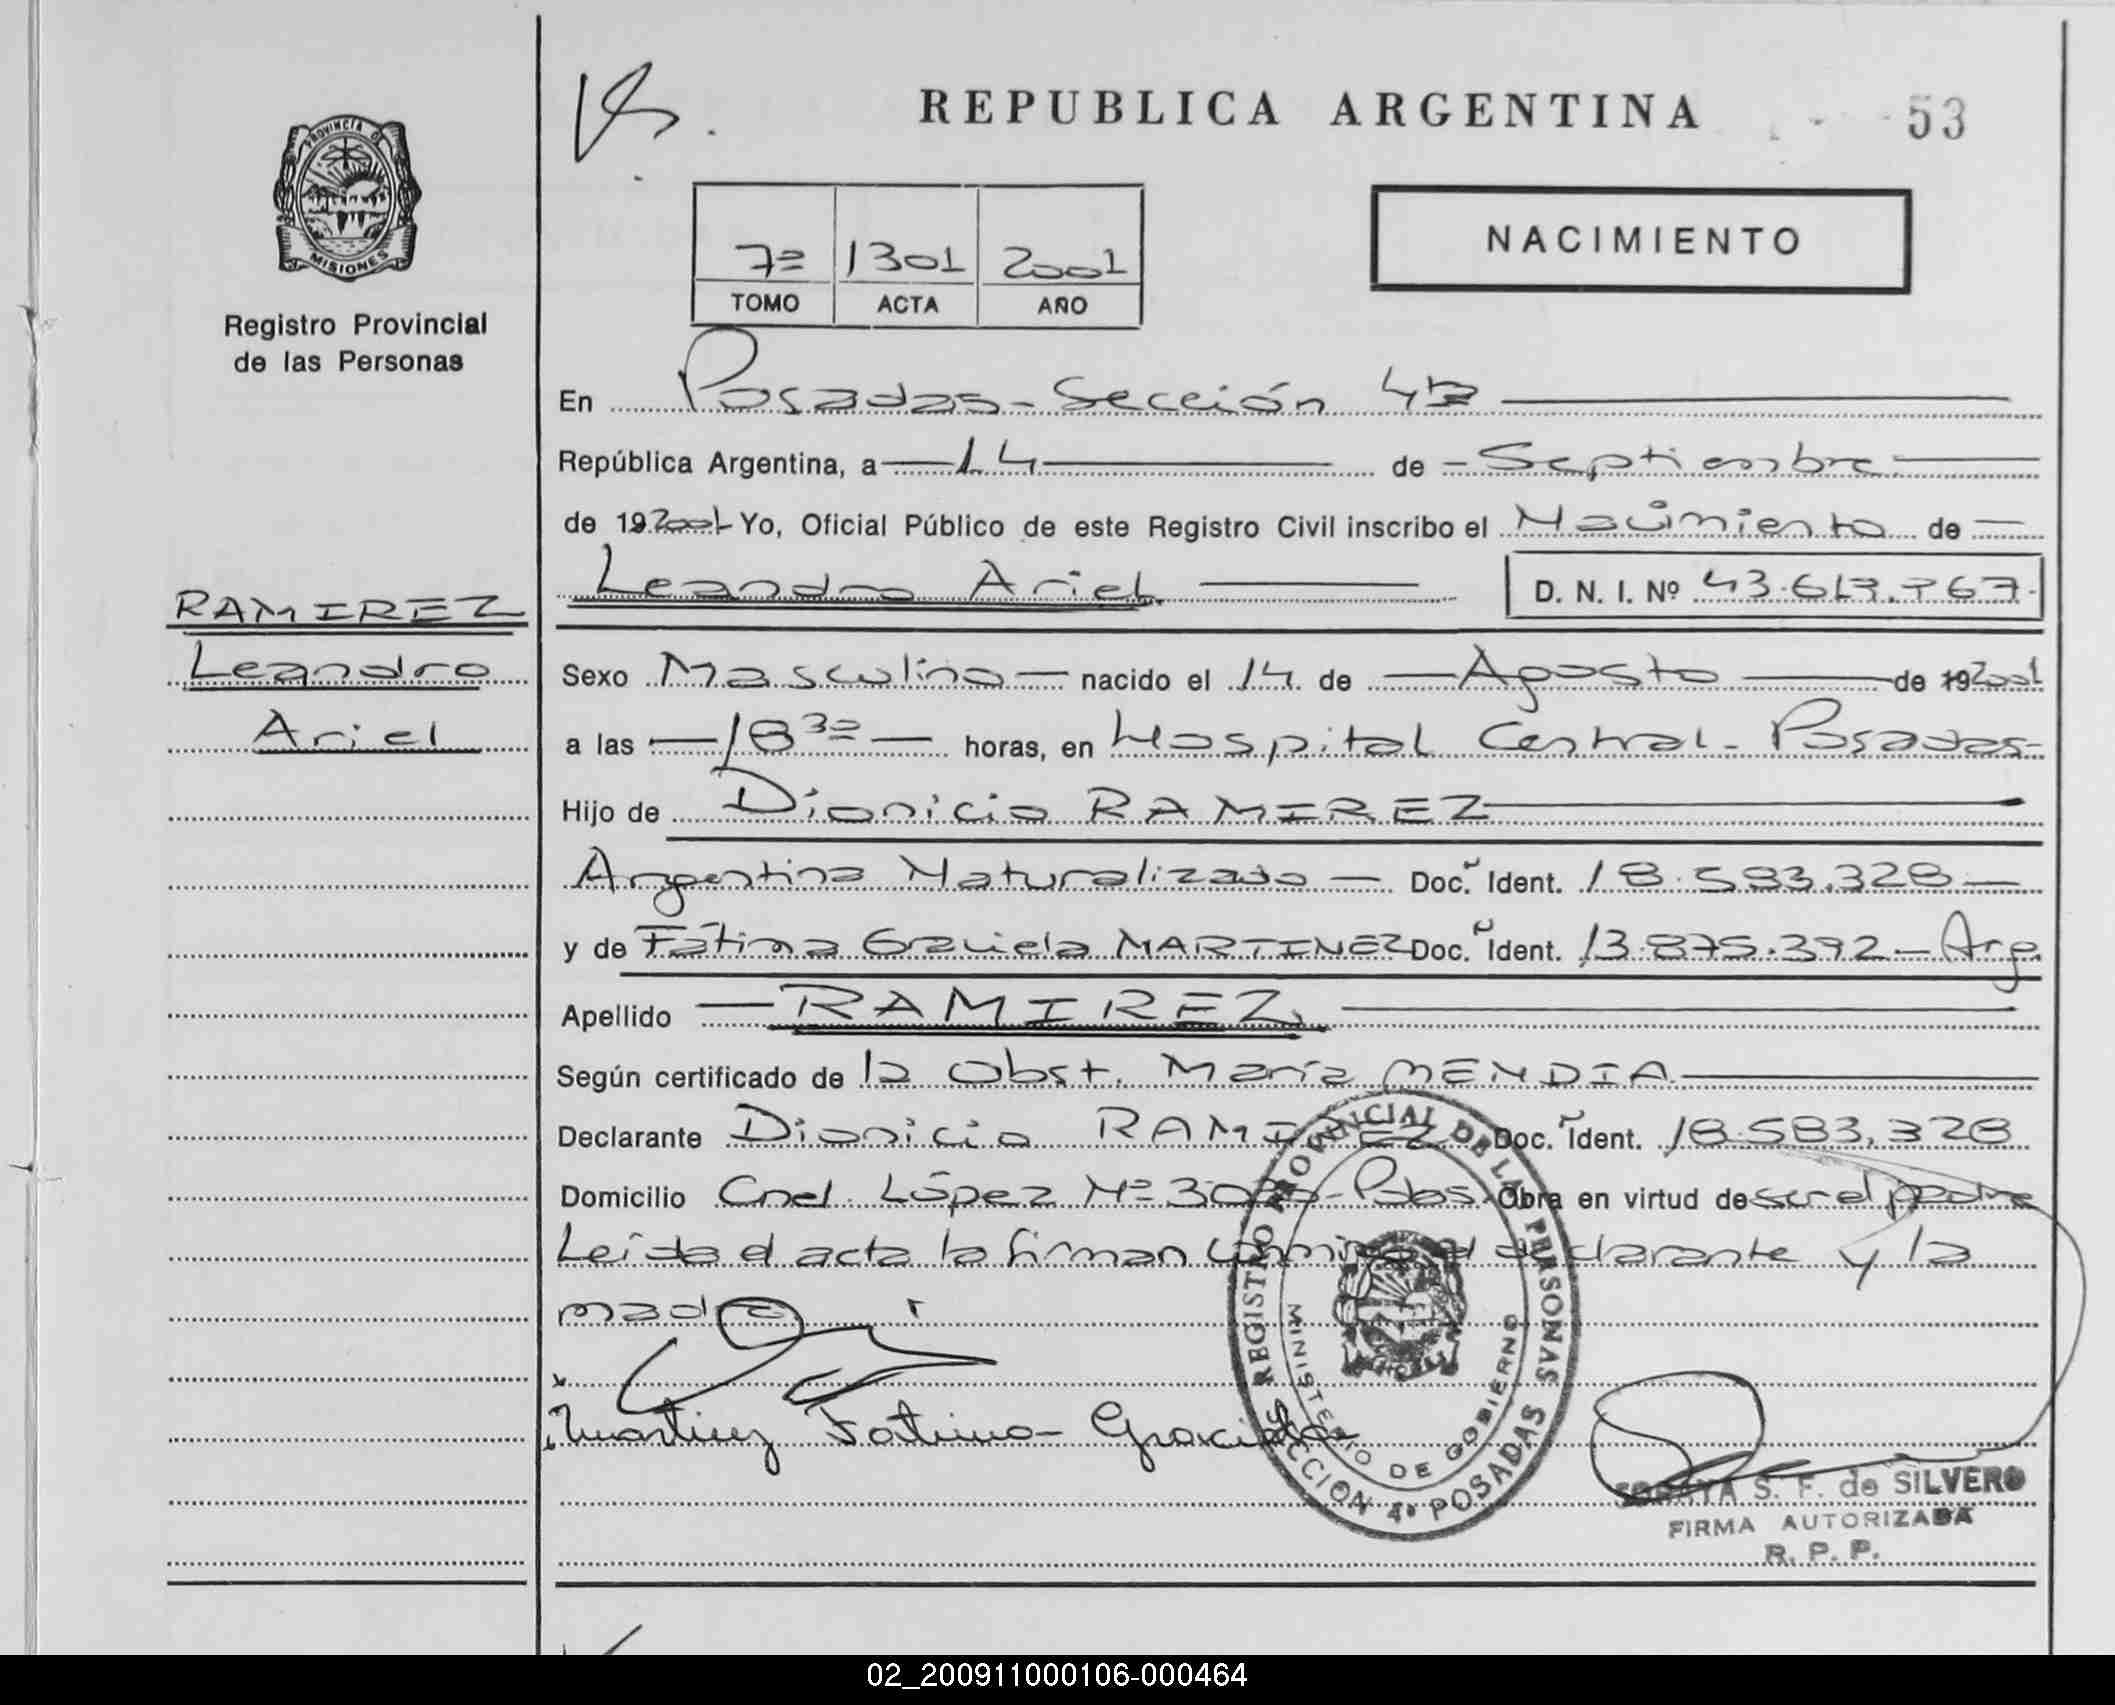 REPUBLICA ARGENTINA
53
PROVINCIA DE
MISIONES
Registro Provincial
de las Personas
NACIMIENTO
7º 1301 2001
TOMO ACTA AÑO
En Posadas - Sección 4ta
República Argentina, a 14 de Septiembre
de 192001 Yo, Oficial Público de este Registro Civil inscribo el Nacimiento de
Leandro Ariel D. N. I. Nº 43.617.767.
RAMIREZ
Leandro
Ariel
Sexo Masculino nacido el 14 de Agosto de 192001
a las 18 30 horas, en Hospital Central - Posadas-
Hijo de Dionicio RAMIREZ
Argentino Naturalizado Doc. Ident. 18.593.328
y de Fátima Graciela MARTINEZ Doc. Ident. 13.875.392 - Arg.
Apellido RAMIREZ
Según certificado de la Obst. María MENDIA
Declarante Dionicio RAMIREZ Doc. Ident. 18.583.328
Domicilio Cnel. López Nº - Pdas. Obra en virtud de ser el padre
Leída el acta la firman conmigo el declarante y la
madre
Martinez Fatima Graciela
REGISTRO PROVINCIAL DE LAS PERSONAS
MINISTERIO DE GOBIERNO
SECCION 4ª POSADAS
SORAYA S. F. de SILVERO
FIRMA AUTORIZADA
R. P. P.
02_200911000106-000464